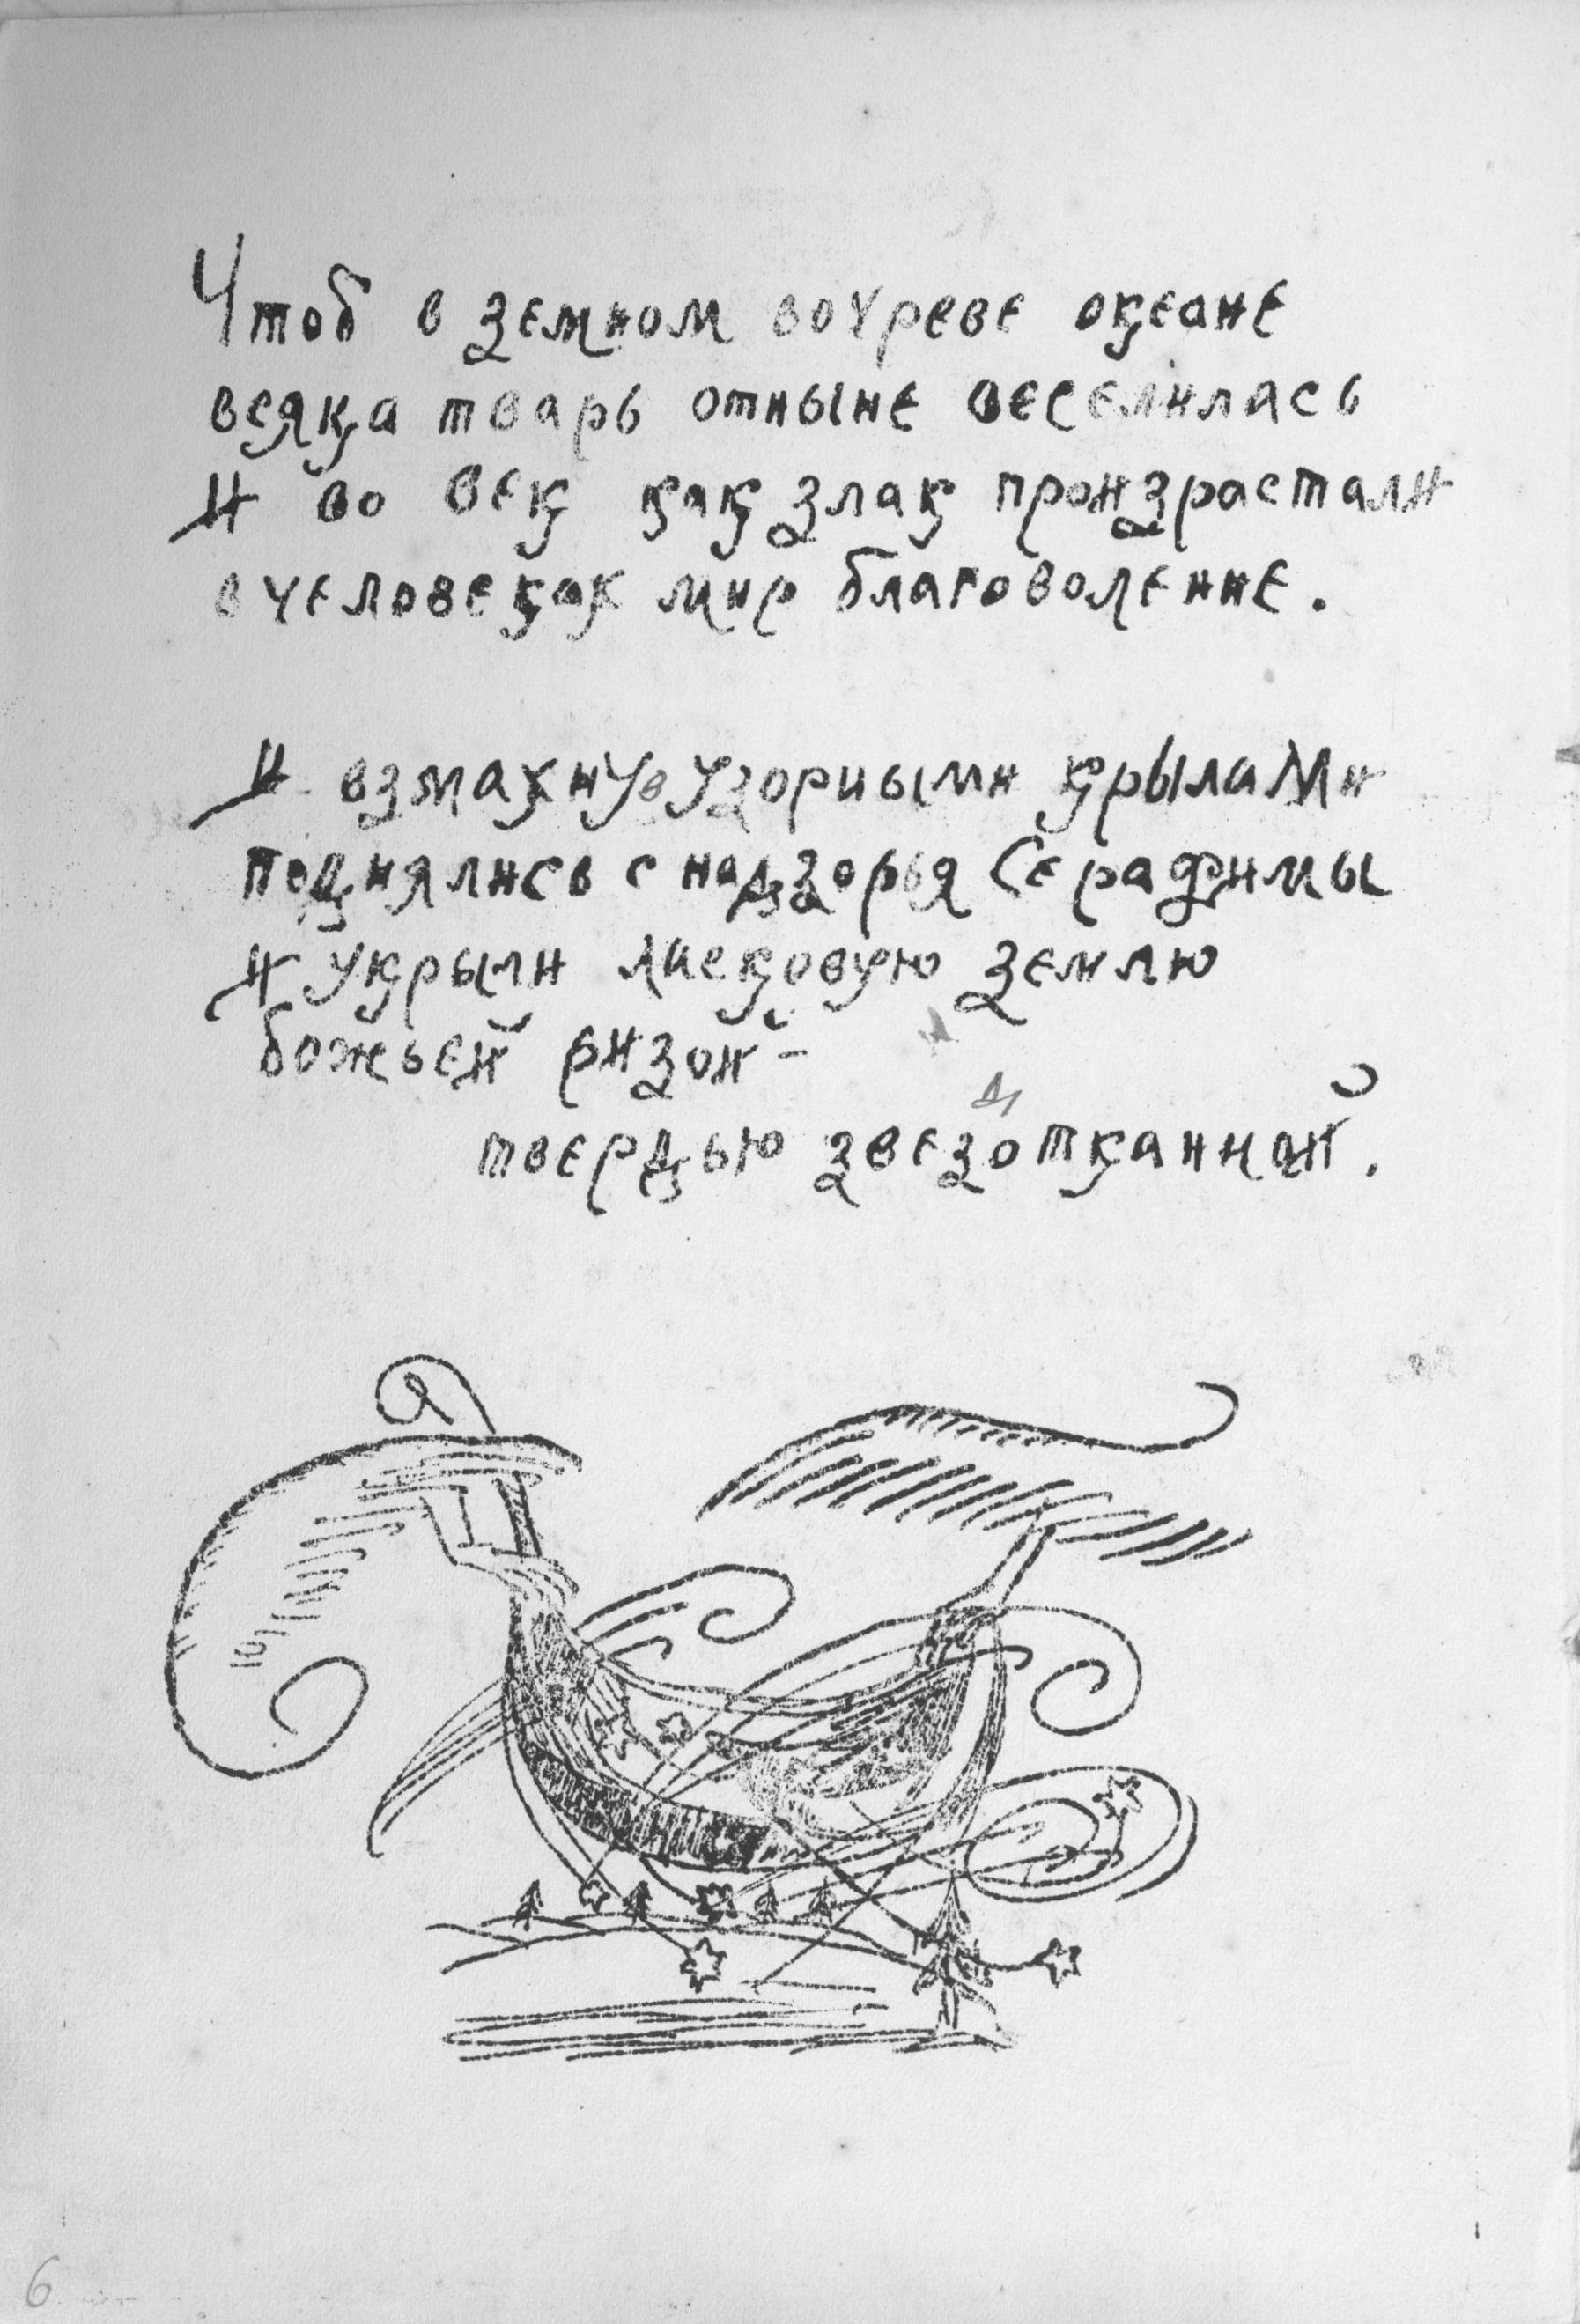 Чтоб в земном вочреве океане
всяка тварь отныне веселилась
И во век как злак произрастали
в человеках мир благоволение.
И взмахнув узорными крылами
поднялись с надзорья Серафимы
И укрыли ликовую землю
божьей ризой –
твердью звездотканной.
6